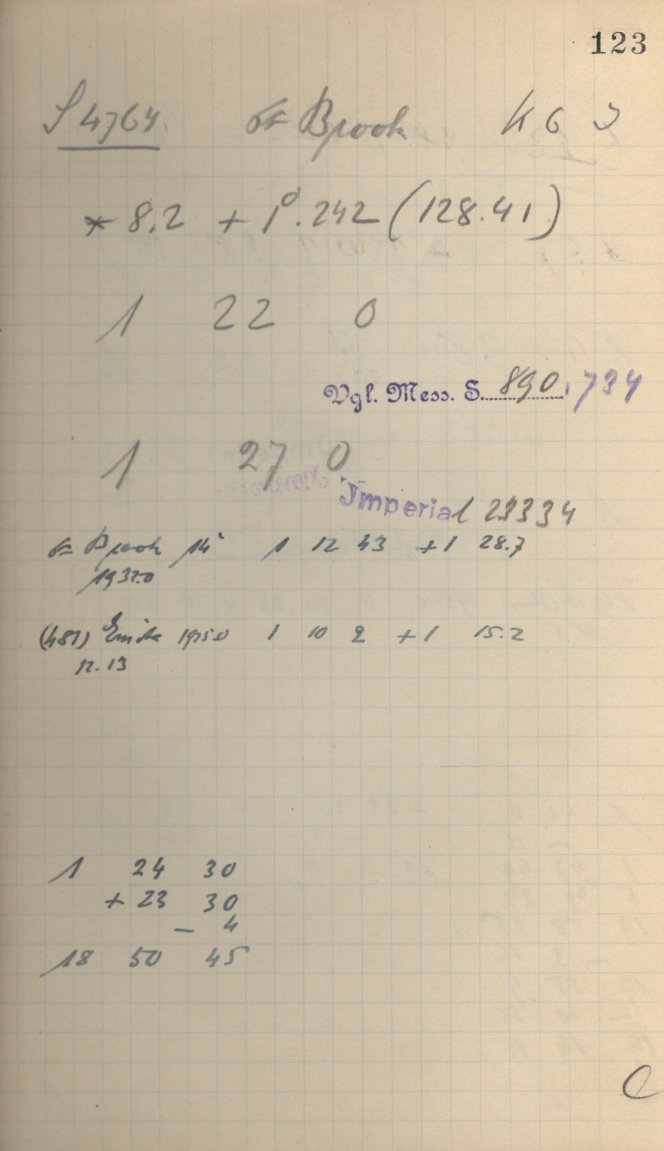 123
S 4764 Brook K 6
* 8.2 + 1°.242 (128.41)
1 22 0
Vgl. Mess. S. 890, 734
1 27 0
Imperial 23334
Brook 14 1 12 43 +1 28.7
1932.0
(481) Emita 1925.0 1 10 2 +1 15.2
12.13
1 24 30
+ 23 30
- 4
18 50 45